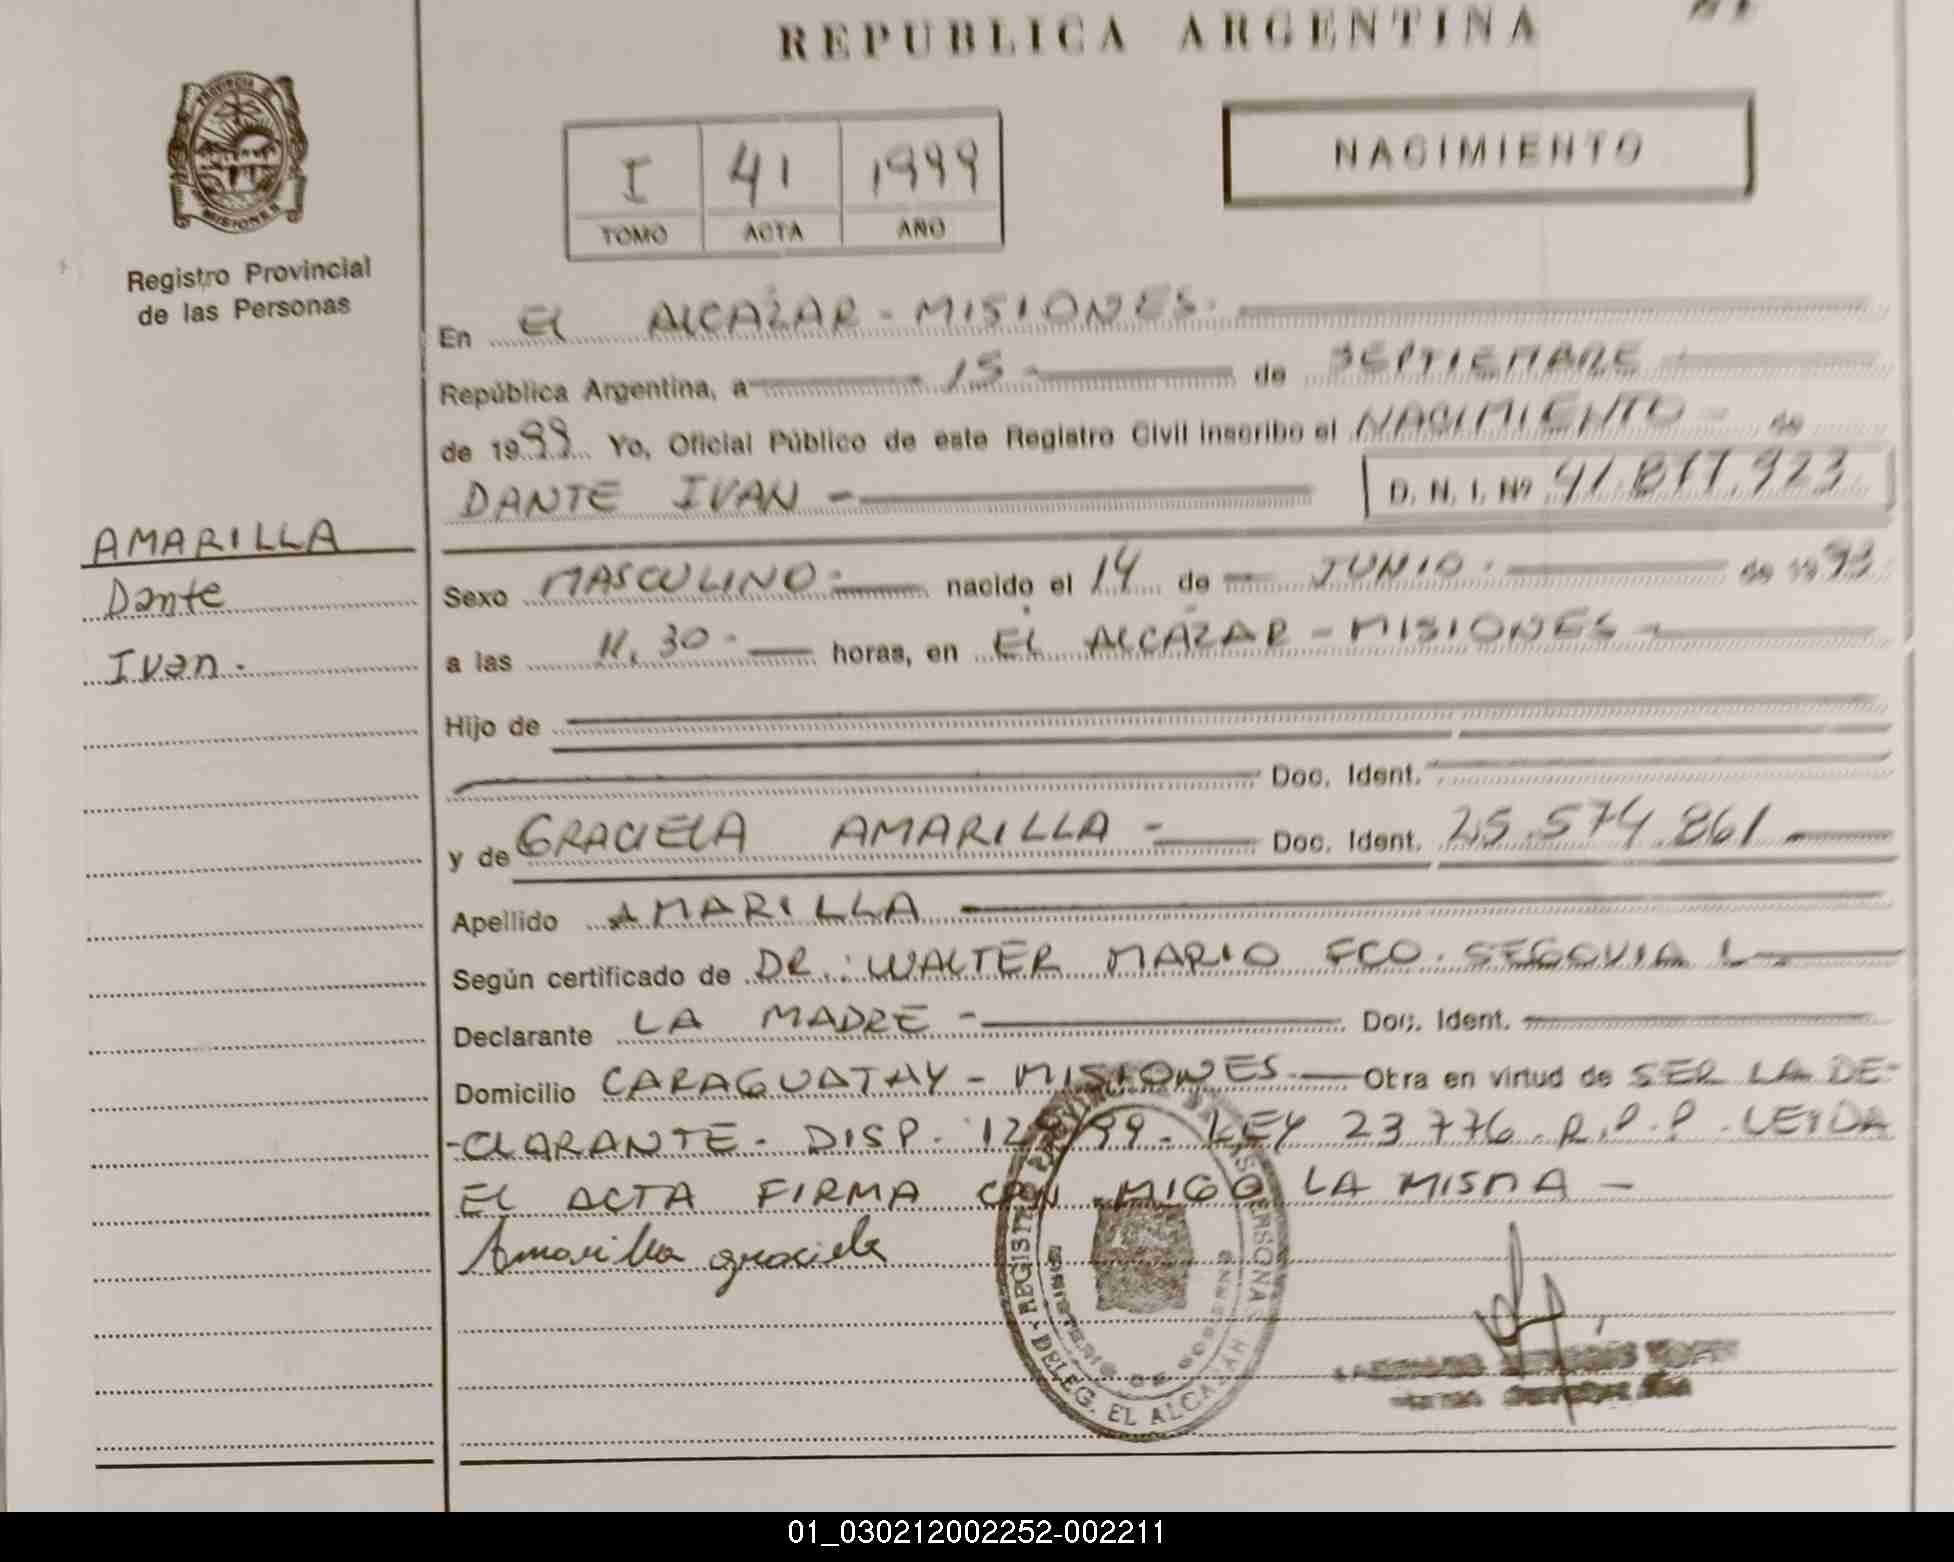 REPUBLICA ARGENTINA
PROVINCIA DE
MISIONES
Registro Provincial
de las Personas
I 41 1999
TOMO ACTA AÑO
NACIMIENTO
En EL ALCAZAR - MISIONES.
República Argentina, a 15 - de SEPTIEMBRE
de 1999 Yo, Oficial Público de este Registro Civil inscribo el NACIMIENTO - de
DANTE IVAN - D. N. I. Nº 41.877.923
AMARILLA
Dante
Ivan.
Sexo MASCULINO - nacido el 14 de JUNIO. de 19
a las 11,30 - horas, en EL ALCAZAR - MISIONES -
Hijo de
Doc. Ident.
y de GRACIELA AMARILLA - Doc. Ident. 25.574.861 -
Apellido AMARILLA
Según certificado de DR.: WALTER MARIO FCO. SEGOVIA L
Declarante LA MADRE - Doc. Ident.
Domicilio CARAGUATAY - MISIONES - Obra en virtud de SER LA DE-
-CLARANTE - DISP. /99 - LEY 23776. R.P.P. LEIDA
EL ACTA FIRMA CONMIGO LA MISMA -
Amarilla graciela
REGISTRO PERSONAS
MINISTERIO DE GOBIERNO
DELEG. EL ALCAZAR
01_030212002252-002211